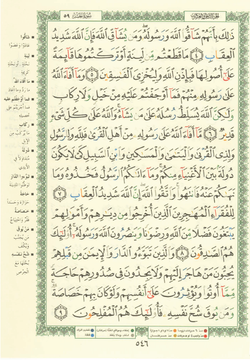 ذَٰلِكَ بِأَنَّهُمْ شَاقُّوا۟ ٱللَّهَ وَرَسُولَهُۥ وَمَن يُشَآقِّ ٱللَّهَ فَإِنَّ ٱللَّهَ شَدِيدُ
ٱلْعِقَابِ ٤ مَا قَطَعْتُم مِّن لِّينَةٍ أَوْ تَرَكْتُمُوهَا قَآئِمَةً
عَلَىٰٓ أُصُولِهَا فَبِإِذْنِ ٱللَّهِ وَلِيُخْزِىَ ٱلْفَٰسِقِينَ ٥ وَمَآ أَفَآءَ ٱللَّهُ
عَلَىٰ رَسُولِهِۦ مِنْهُمْ فَمَآ أَوْجَفْتُمْ عَلَيْهِ مِنْ خَيْلٍ وَلَا رِكَابٍ
وَلَٰكِنَّ ٱللَّهَ يُسَلِّطُ رُسُلَهُۥ عَلَىٰ مَن يَشَآءُ وَٱللَّهُ عَلَىٰ كُلِّ شَىْءٍ
قَدِيرٌ ٦ مَّآ أَفَآءَ ٱللَّهُ عَلَىٰ رَسُولِهِۦ مِنْ أَهْلِ ٱلْقُرَىٰ فَلِلَّهِ وَلِلرَّسُولِ
وَلِذِى ٱلْقُرْبَىٰ وَٱلْيَتَٰمَىٰ وَٱلْمَسَٰكِينِ وَٱبْنِ ٱلسَّبِيلِ كَىْ لَا يَكُونَ
دُولَةًۢ بَيْنَ ٱلْأَغْنِيَآءِ مِنكُمْ وَمَآ ءَاتَىٰكُمُ ٱلرَّسُولُ فَخُذُوهُ وَمَا
نَهَىٰكُمْ عَنْهُ فَٱنتَهُوا۟ وَٱتَّقُوا۟ ٱللَّهَ إِنَّ ٱللَّهَ شَدِيدُ ٱلْعِقَابِ ٧
لِلْفُقَرَآءِ ٱلْمُهَٰجِرِينَ ٱلَّذِينَ أُخْرِجُوا۟ مِن دِيَٰرِهِمْ وَأَمْوَٰلِهِمْ
يَبْتَغُونَ فَضْلًا مِّنَ ٱللَّهِ وَرِضْوَٰنًا وَيَنصُرُونَ ٱللَّهَ وَرَسُولَهُۥٓ أُو۟لَٰٓئِكَ
هُمُ ٱلصَّٰدِقُونَ ٨ وَٱلَّذِينَ تَبَوَّءُو ٱلدَّارَ وَٱلْإِيمَٰنَ مِن قَبْلِهِمْ
يُحِبُّونَ مَنْ هَاجَرَ إِلَيْهِمْ وَلَا يَجِدُونَ فِى صُدُورِهِمْ حَاجَةً
مِّمَّآ أُوتُوا۟ وَيُؤْثِرُونَ عَلَىٰٓ أَنفُسِهِمْ وَلَوْ كَانَ بِهِمْ خَصَاصَةٌ
وَمَن يُوقَ شُحَّ نَفْسِهِۦ فَأُو۟لَٰٓئِكَ هُمُ ٱلْمُفْلِحُونَ ٩
٥٤٦